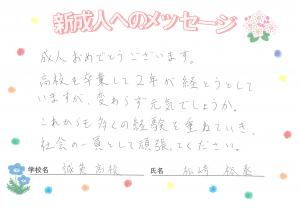 新成人へのメッセージ
成人おめでとうございます。
高校を卒業して2年が経とうとして
いますが、変わらず元気でしょうか。
これからも多くの経験を重ねていき、
社会の一員として頑張ってください。
学校名 誠英高校 氏名 松崎